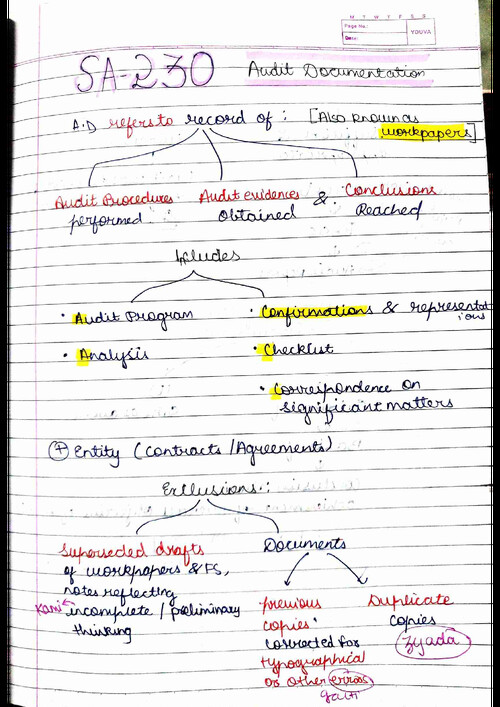 M T W T F S S
Page No.:
Date:
YOUVA
SA-230 Audit Documentation
A.D refers to record of : [Also known as
workpapers]
Audit Procedures performed
Audit evidences Obtained
& Conclusions Reached
Includes
• Audit Program
• Analysis
• Confirmations & representations
• Checklist
• Correspondence on
significant matters
+ Entity (contracts/Agreements)
Exclusions :
Superseded drafts
of workpapers & FS,
notes reflecting
Kami incomplete / preliminary
thinking
Documents
previous
copies
corrected for
typographical
or other errors
galti
Duplicate
copies
zyada